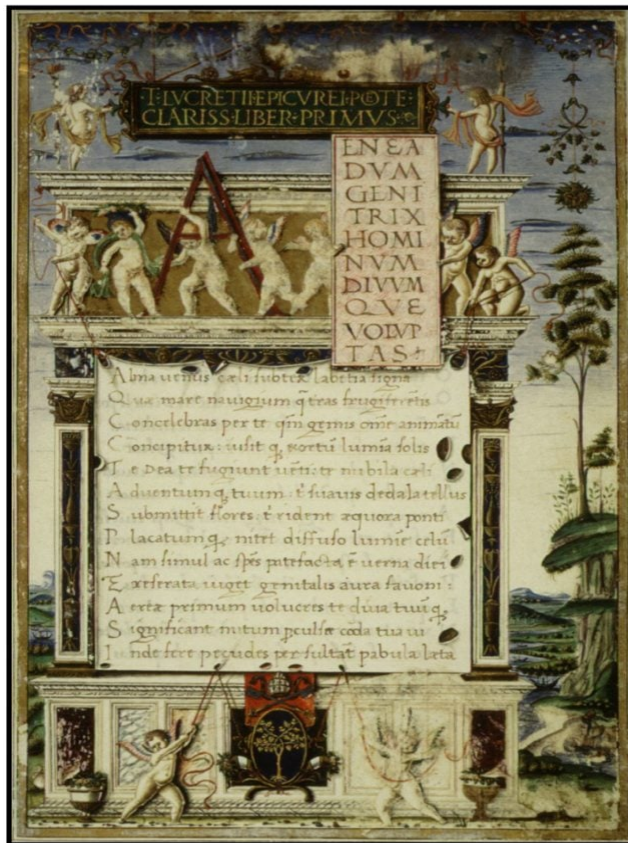 T·LVCRETII·EPICVREI·POTE·
CLARISS·LIBER·PRIMVS·
A
ENEA
DVM
GENI
TRIX
HOMI
NVM
DIVVM
QVE
VOLVP
TAS
Alma venus cæli subter labētia signa
Quæ mare navigium q̄ teras frugiferētis
Concelebras per te qm̄ genus om̄e animātū
Concipitur: uisit q̨ exortū lumīa solis
Te Dea te fugiunt uēti: te nubila cæli
Aduentum q̨ tuum: t̄ suauis dedala tellus
Submittit flores: t̄ rident æquora ponti
Placatum q̨ nitet diffuso lumīe celū
Nam simul ac spēs patefacta ē uerna diei
Et reserata uiget genitalis aura fauoni:
Aeriæ primum uolucres te diua tuū q̨
Significant initum ꝑculsæ corda tua ui
Inde fere pecudes per sultāt pabula læta